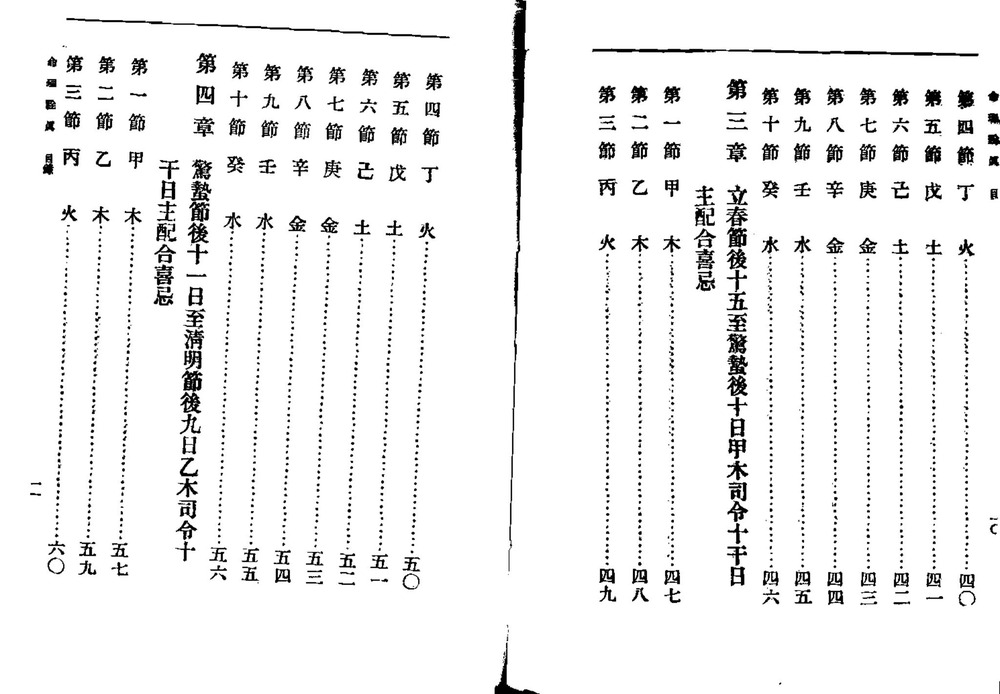 命理詮眞 目
第四節 丁 火………四〇
第五節 戊 土………四一
第六節 己 土………四二
第七節 庚 金………四三
第八節 辛 金………四四
第九節 壬 水………四五
第十節 癸 水………四六
第三章 立春節後十五至驚蟄後十日甲木司令十干日
主配合喜忌
第一節 甲 木………四七
第二節 乙 木………四八
第三節 丙 火………四九
一〇
第四節 丁 火………五〇
第五節 戊 土………五一
第六節 己 土………五二
第七節 庚 金………五三
第八節 辛 金………五四
第九節 壬 水………五五
第十節 癸 水………五六
第四章 驚蟄節後十一日至淸明節後九日乙木司令十
干日主配合喜忌
第一節 甲 木………五七
第二節 乙 木………五九
第三節 丙 火………六〇
命理詮眞 目錄
一一